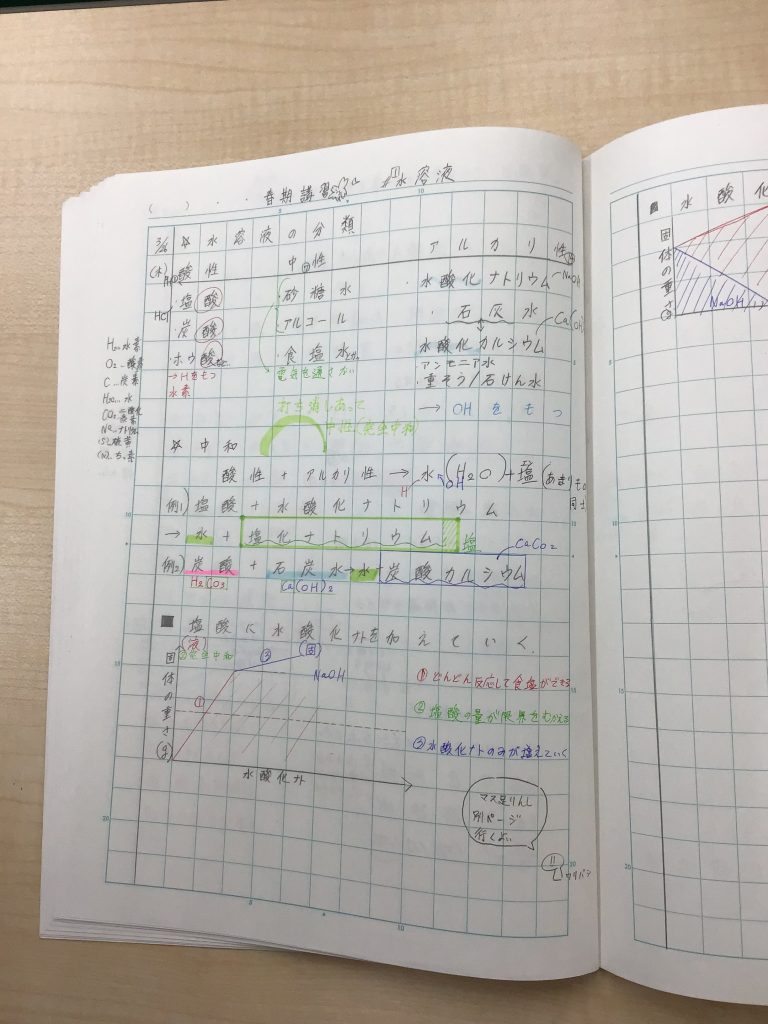 ( ) ・ ・ 春期講習 #1 水溶液
3/26 ☆ 水溶液の分類
(木) 酸性 中性 アルカリ性
HCl ・塩酸 ・砂糖水 ・水酸化ナトリウム NaOH
・炭酸 ・アルコール ・石灰水 Ca(OH)
・ホウ酸 ・食塩水 水酸化カルシウム
→Hをもつ 電気を通さない アンモニア水
水素 ・重そう/石けん水
→ OHをもつ
H…水素
O₂…酸素
C…炭素
H₂O…水
CO₂…二酸化炭素
Na…ナトリウム
打ち消しあって
中性(完全中和)
☆ 中和
酸性 + アルカリ性 → 水(H2O) + 塩(あまりもの同士
H OH
例1) 塩酸 + 水酸化ナトリウム
→ 水 + 塩化ナトリウム 塩
例2) 炭酸 + 石炭水 → 水 + 炭酸カルシウム CaCO2
H₂CO₃ Ca(OH)₂
■ 塩酸に水酸化ナトを加えていく.
(液) (固)
固体の重さ(g)
②完全中和 ③
NaOH
①
水酸化ナト
① どんどん反応して食塩ができる
② 塩酸の量が限界をむかえる
③ 水酸化ナトのみが増えていく
マス足りんし
別ページ
行くよい
11
■ 水酸化
固体の重さ(g)
NaOH